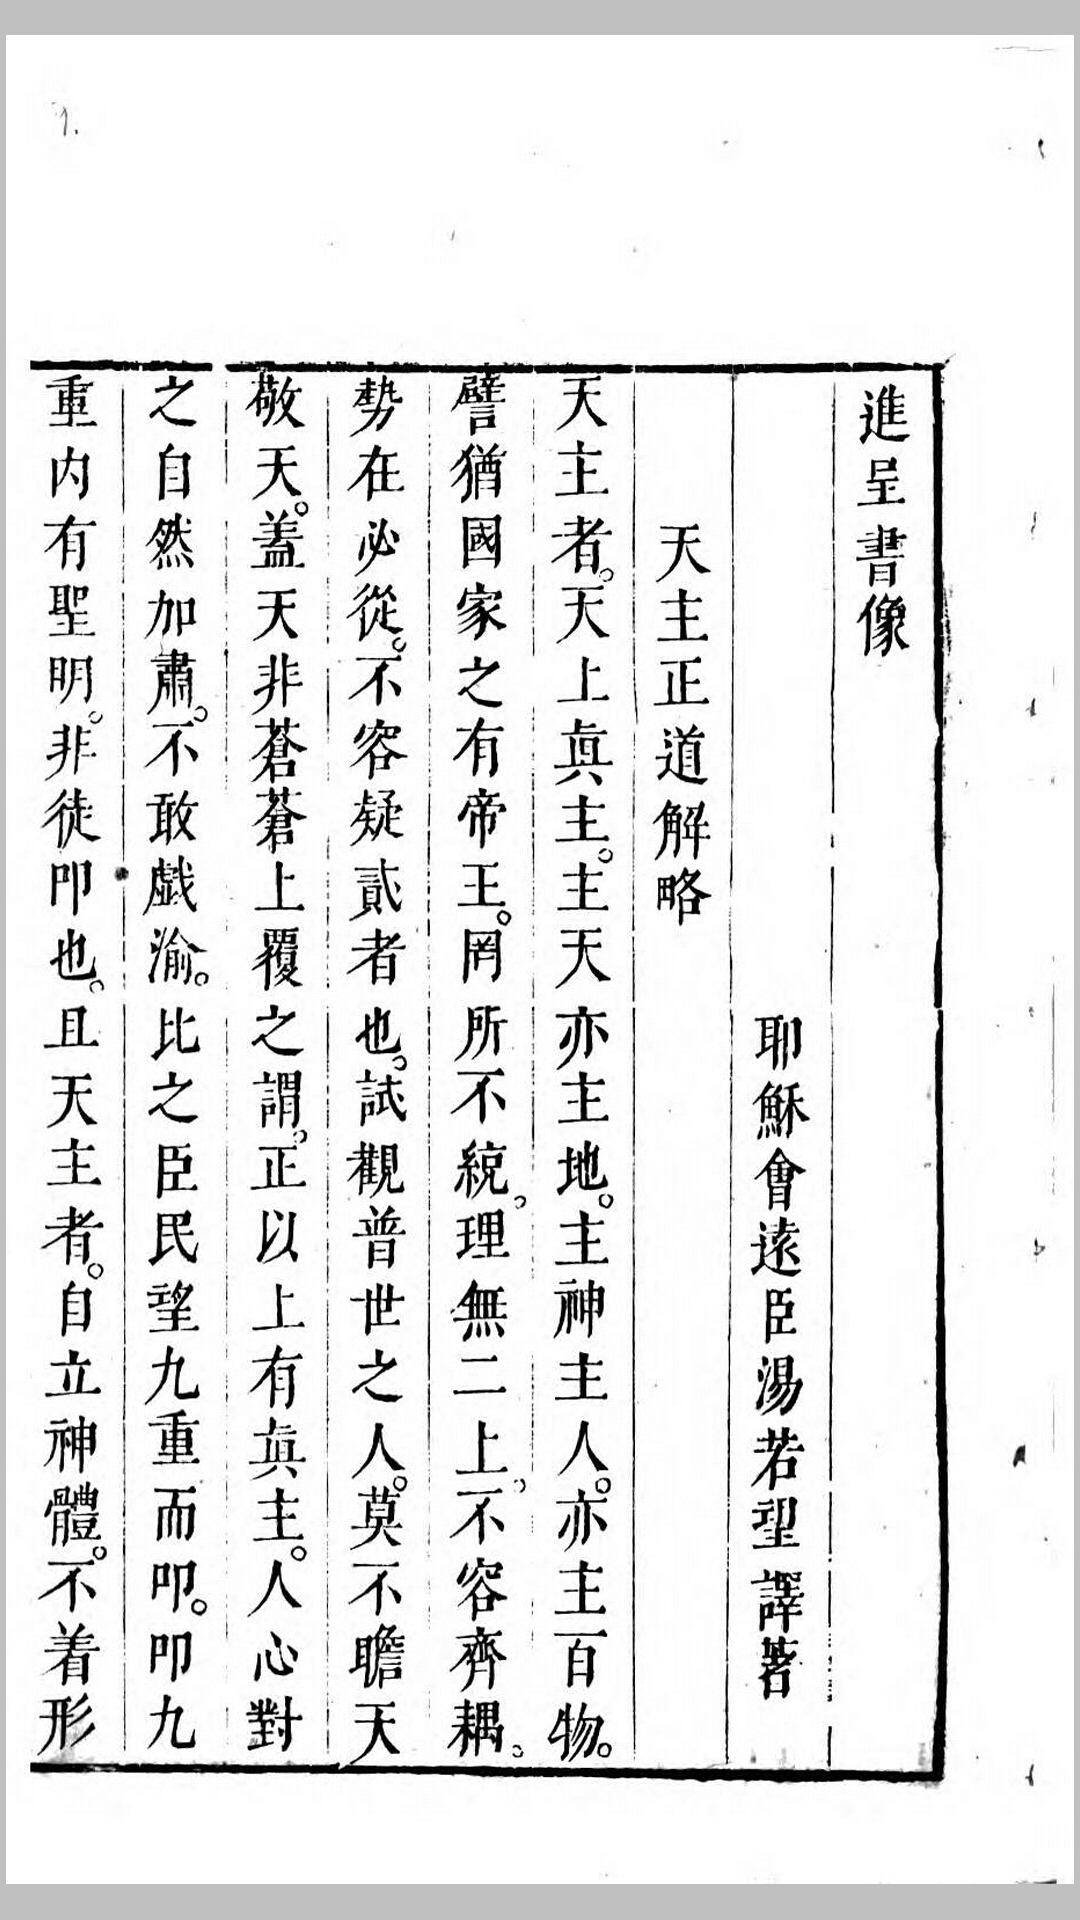 進呈書像
耶穌會遠臣湯若望譯著
天主正道解略
天主者。天上眞主。主天亦主地。主神主人。亦主百物。
譬猶國家之有帝王。罔所不統。理無二上。不容齊耦。
勢在必從。不容疑貳者也。試觀普世之人。莫不瞻天
敬天。蓋天非蒼蒼上覆之謂。正以上有眞主。人心對
之自然加肅。不敢戲渝。比之臣民望九重而叩。叩九
重內有聖明。非徒叩也。且天主者。自立神體。不着形